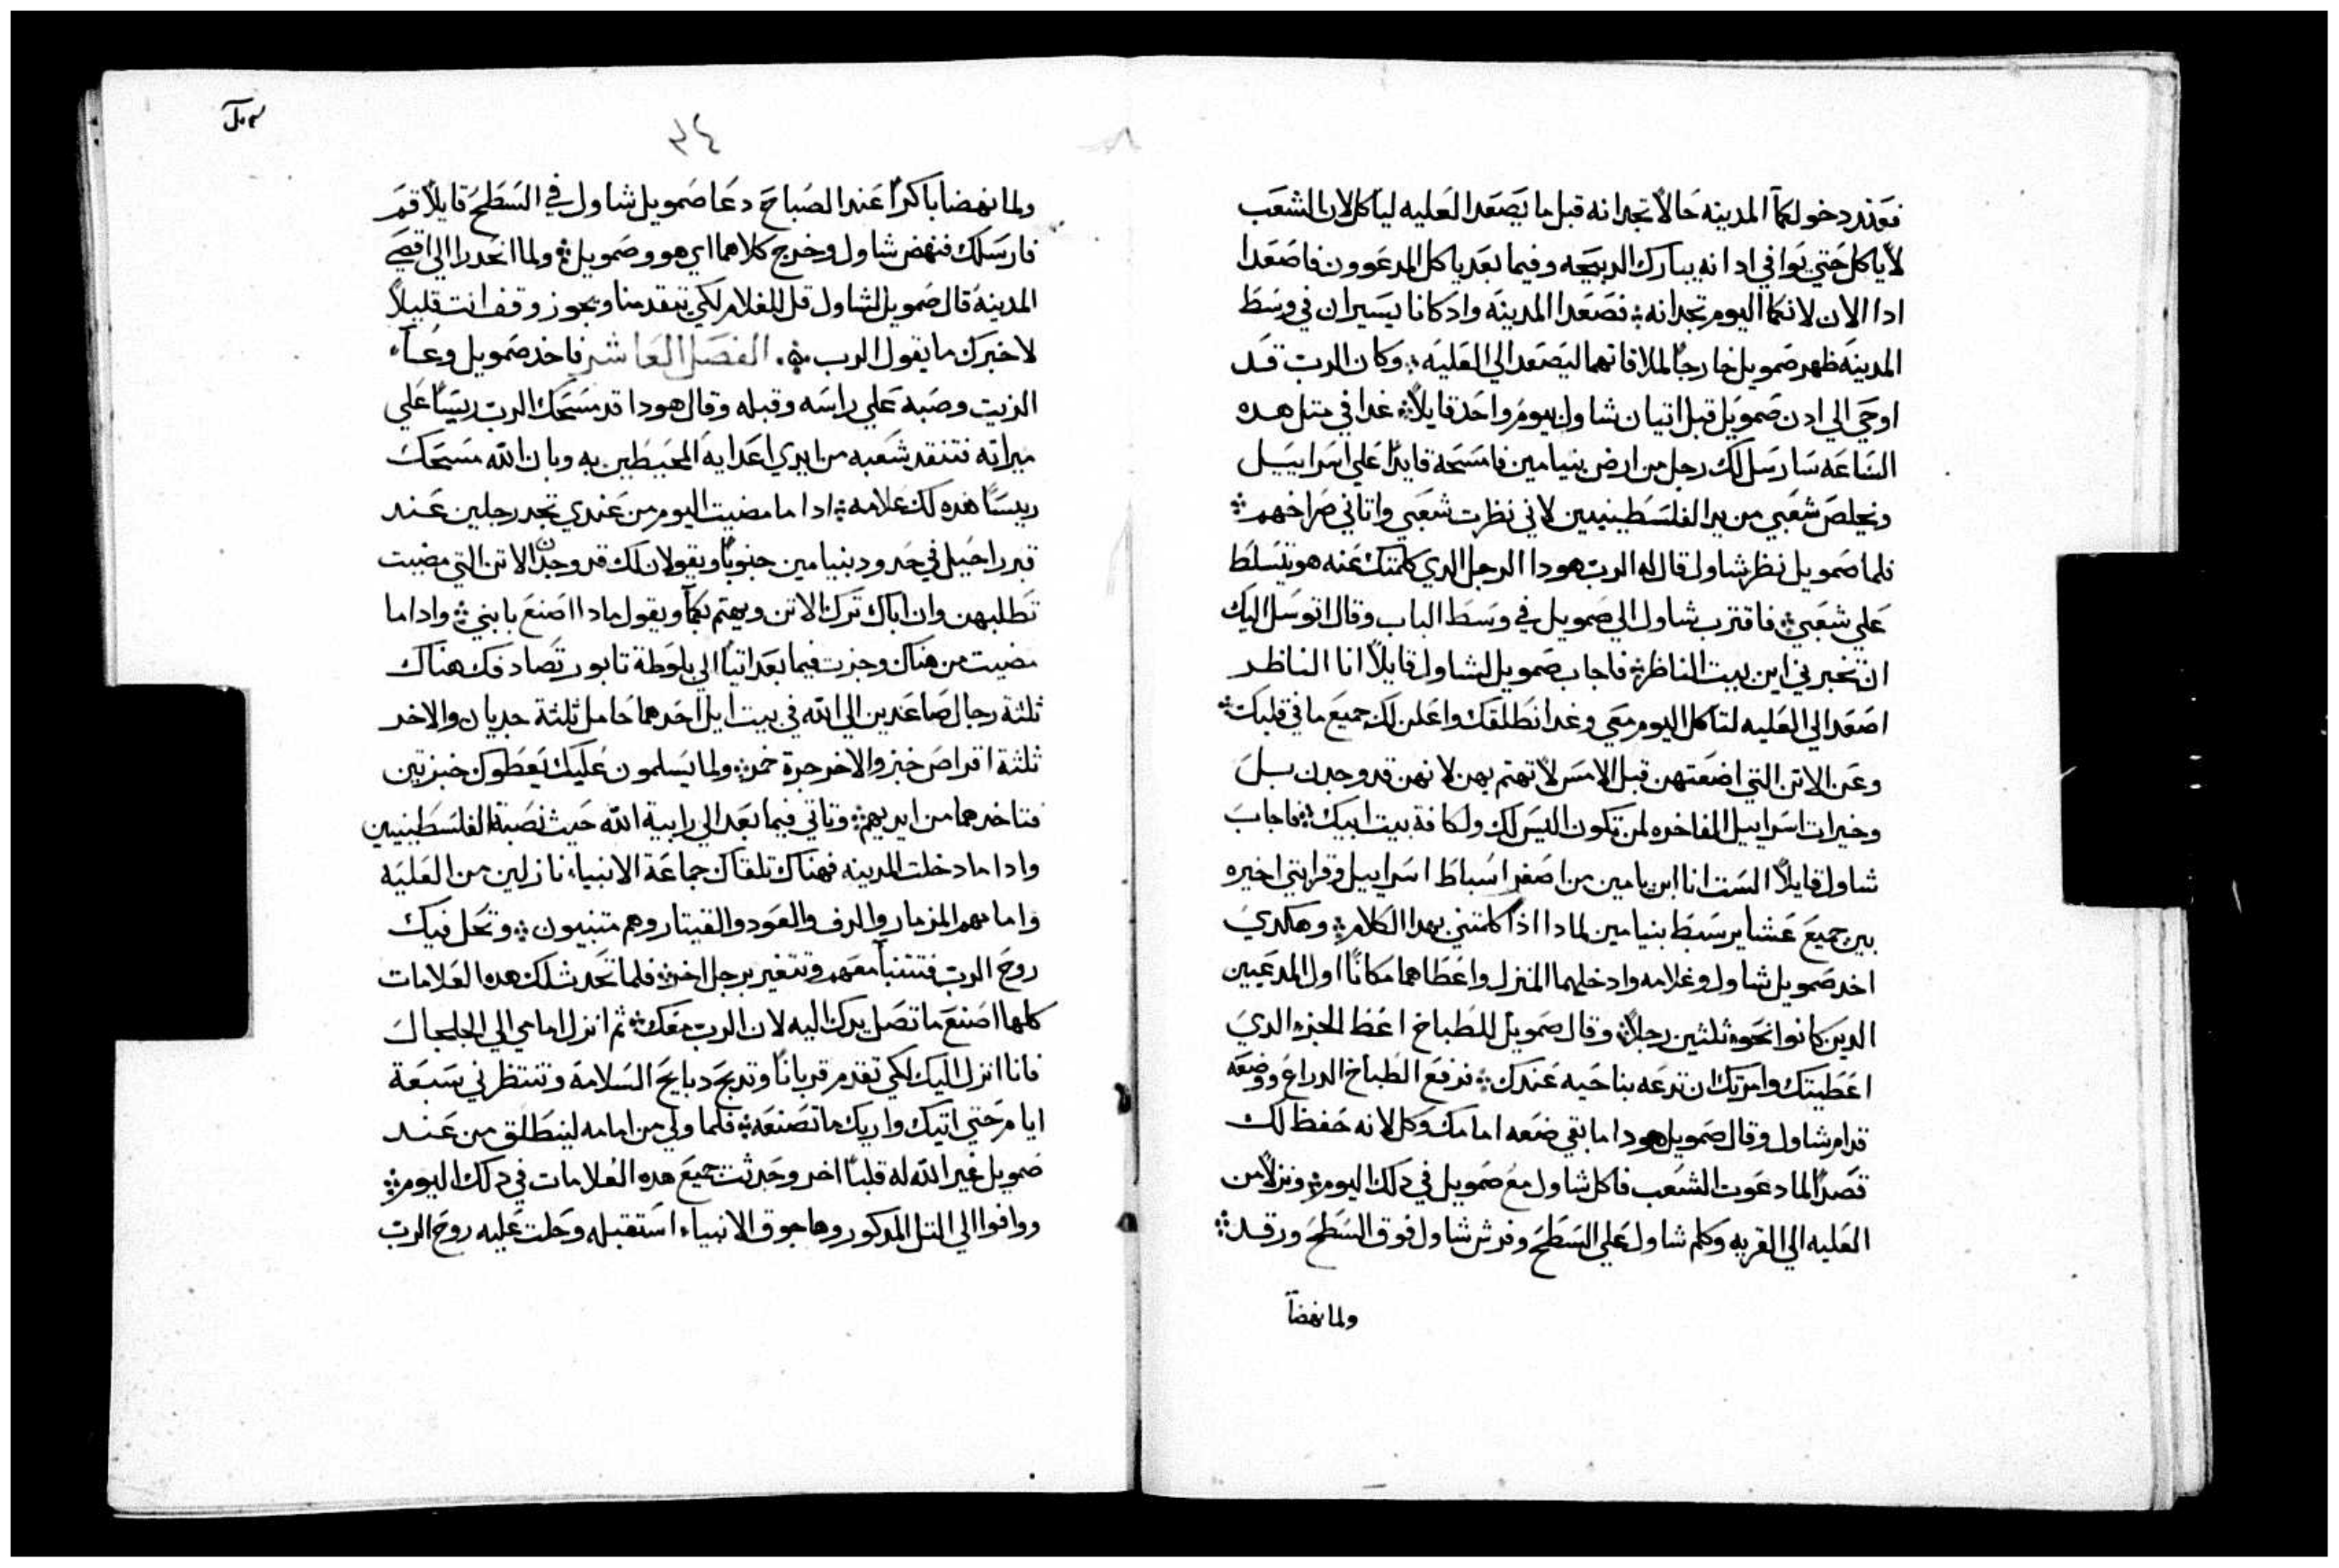 فعند دخولكما المدينه حالاً تجدانه قبل ما يصعد العليه لياكل لان الشعب
لا ياكل حتي يوافي ادا انه يبارك الدبيحه وفيما بعد ياكل المدعوون فاصعدا
ادا الان لانكما اليوم تجدانه ፨ فصعدا المدينه واد كانا يسيران في وسط
المدينه ظهر صمويل خارجاً لملاقاتهما ليصعد الي العليه ፨ وكان الرب قد
اوحي الي ادن صمويل قبل اتيان شاول بيوم واحد قايلاً ፨ غدا في متل هده
الساعه سارسل لك رجل من ارض بنيامين فامسحه قايداً علي اسراييل
ونخلص شعبي من يد الفلسطينيين لاني نظرت شعبي واتاني صراخهم ፨
فلما صمويل نظر شاول قال له الرب هودا الرجل الدي كلمتك عنه هو يتسلط
علي شعبي ፨ فاقترب شاول الي صمويل في وسط الباب وقال اتوسل اليك
ان تخبرني اين بيت الناظر ፨ فاجاب صمويل لشاول قايلاً انا الناظر
اصعد الي العليه لتاكل اليوم معي وغدا نطلقك واعلن لك جميع ما في قلبك ፨
وعن الاتن التي اضعتهن قبل الامس لا تهتم بهن لانهن قد وجدن بل
وخيرات اسراييل الفاخره لمن تكون اليس لك ولكافة بيت ابيك ፨ فاجاب
شاول قايلاً الست انا ابن يامين من اصغر اسباط اسراييل وقرابتي اخيره
بين جميع عشاير سبط بنيامين لمادا اذا كلمتني بهدا الكلام ፨ وهكدي
اخد صمويل شاول وغلامه وادخلهما المنزل واعطاهما مكاناً اول المدعيين
الدين كانوا نحو ثلثين رجلاً ፨ وقال صمويل للطباخ اعط الجزء الدي
اعطيتك وامرتك ان تدعه بناحيه عندك ፨ فرفع الطباخ الدراع ووضعه
قدام شاول وقال صمويل هودا ما بقي ضعه امامك وكل لانه حفظ لك
قصداً لما دعوت الشعب فاكل شاول مع صمويل في دلك اليوم ፨ ونزلا من
العليه الي القريه وكلم شاول علي السطح وفرش شاول فوق السطح ورقد ፨
ولما نهضا
٣٤
ولما نهضا باكراً عند الصباح دعا صمويل شاول في السطح قايلاً قم
فارسلك فنهض شاول وخرج كلاهما اي هو وصمويل ፨ ولما انحدرا الي اقصي
المدينة قال صمويل لشاول قل للغلام لكي يتقدمنا ويجوز وقف انت قليلاً
لاخبرك ما يقول الرب ፨ الفصل العاشر فاخد صمويل وعاء
الزيت وصبه علي راسه وقبله وقال هودا قد مسحك الرب ريساً علي
ميراته فتنقد شعبه من ايدي اعدايه المحيطين به وبان الله مسحك
ريساً هده لك علامه ፨ ادا ما مضيت اليوم من عندي تجد رجلين عند
قبر راحيل في حدود بنيامين جنوباً ويقولان لك قد وجدن الاتن التي مضيت
تطلبهن وان اباك ترك الاتن ويهتم بكما ويقول مادا اصنع بابني ፨ وادا ما
مضيت من هناك وجزت فيما بعد اتياً الي بلوطة تابور تصادفك هناك
ثلثة رجال صاعدين الي الله في بيت ايل احدهما حامل ثلثة جديان والاخر
ثلثة اقراص خبز والاخر جرة خمر ፨ ولما يسلمون عليك يعطوك خبزتين
فتاخدهما من ايديهم ፨ وتاتي فيما بعد الي رابية الله حيث نصبة الفلسطينيين
وادا ما دخلت المدينه فهناك تلقاك جماعة الانبياء نازلين من العليه
وامامهم المزمار والدف والعود والقيتار وهم متنبيون ፨ وتحل فيك
روح الرب فتتنبأ معهم وتتغير برجل اخر ፨ فلما تحدث لك هده العلامات
كلها اصنع ما تصل يدك اليه لان الرب معك ፨ ثم انزل امامي الي الجلجال
فانا انزل اليك لكي تقدم قرباناً وتدبح دبايح السلامة وتنتظرني سبعة
ايام حتي اتيك واريك ما تصنعه ፨ فلما ولي من امامه لينطلق من عند
صمويل غير الله له قلباً اخر وحدثت جميع هده العلامات في دلك اليوم ፨
ووافوا الي التل المدكور وها جوق الانبياء استقبله وحلت عليه روح الرب